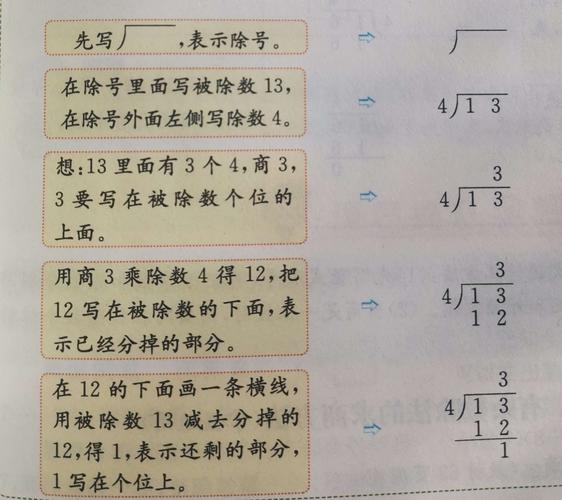 先写厂,表示除号。
在除号里面写被除数 13,
在除号外面左侧写除数 4。
4 1 3
想:13 里面有 3 个 4,商 3,
3 要写在被除数个位的
上面。
3
4 1 3
用商 3 乘除数 4 得 12,把
12 写在被除数的下面,表
示已经分掉的部分。
3
4 1 3
1 2
在 12 的下面画一条横线,
用被除数 13 减去分掉的
12,得 1,表示还剩的部分,
1 写在个位上。
3
4 1 3
1 2
1